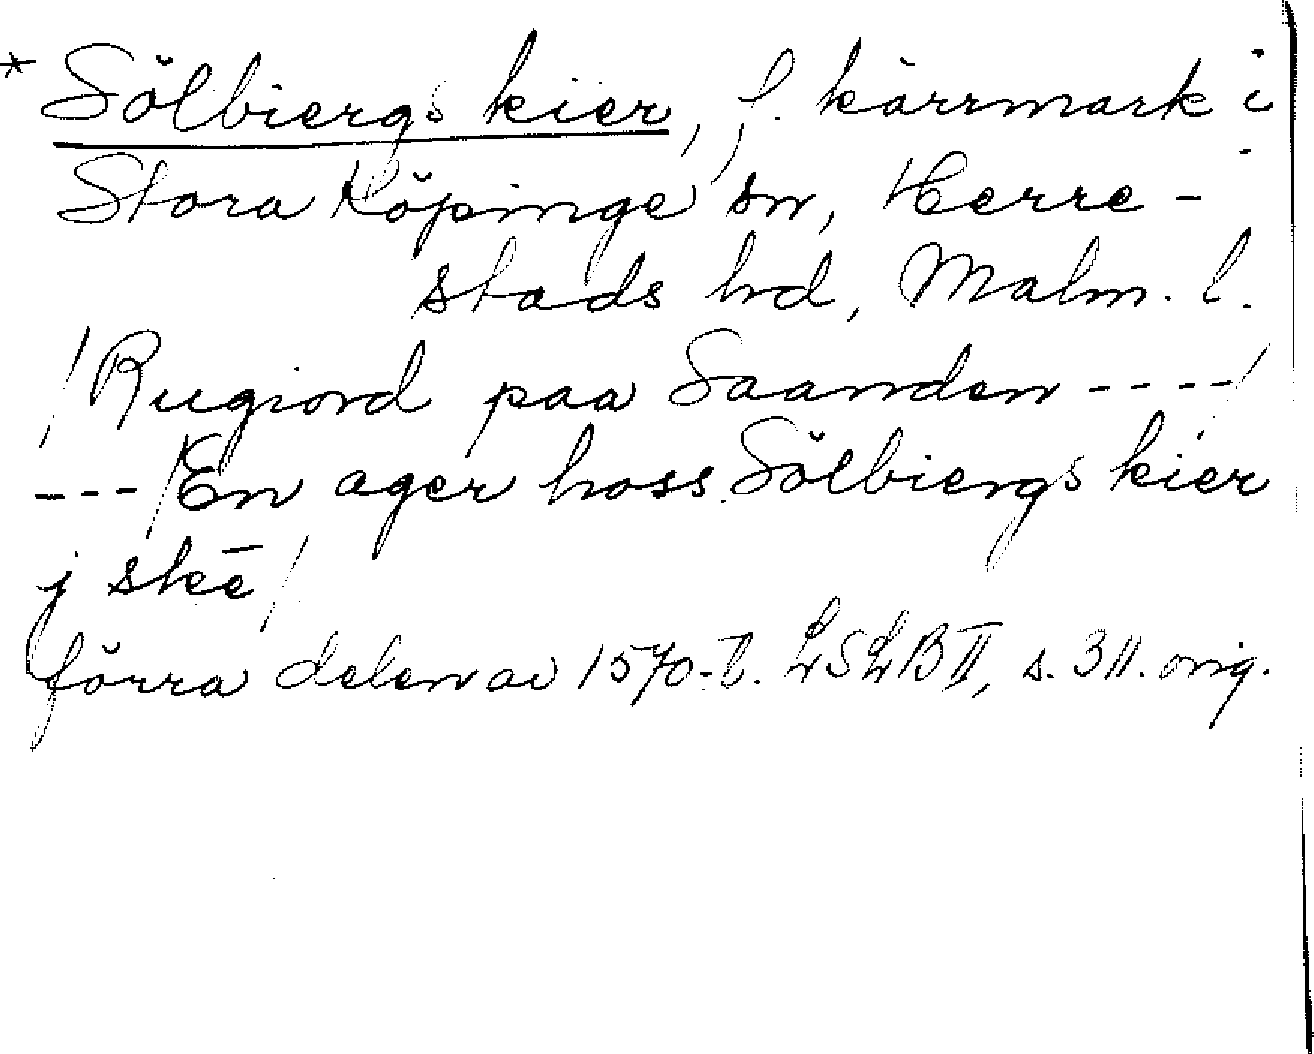 * Sölbiergs kier, f. kärrmark i
Stora Köpinge sn, Herre-
stads hd, Malm. l.
/Rugiord paa Saanden ----/
---/En ager hoss Sölbiergs kier
j skē/
förra delen av 1570-t. LSLB II, s. 311. orig.